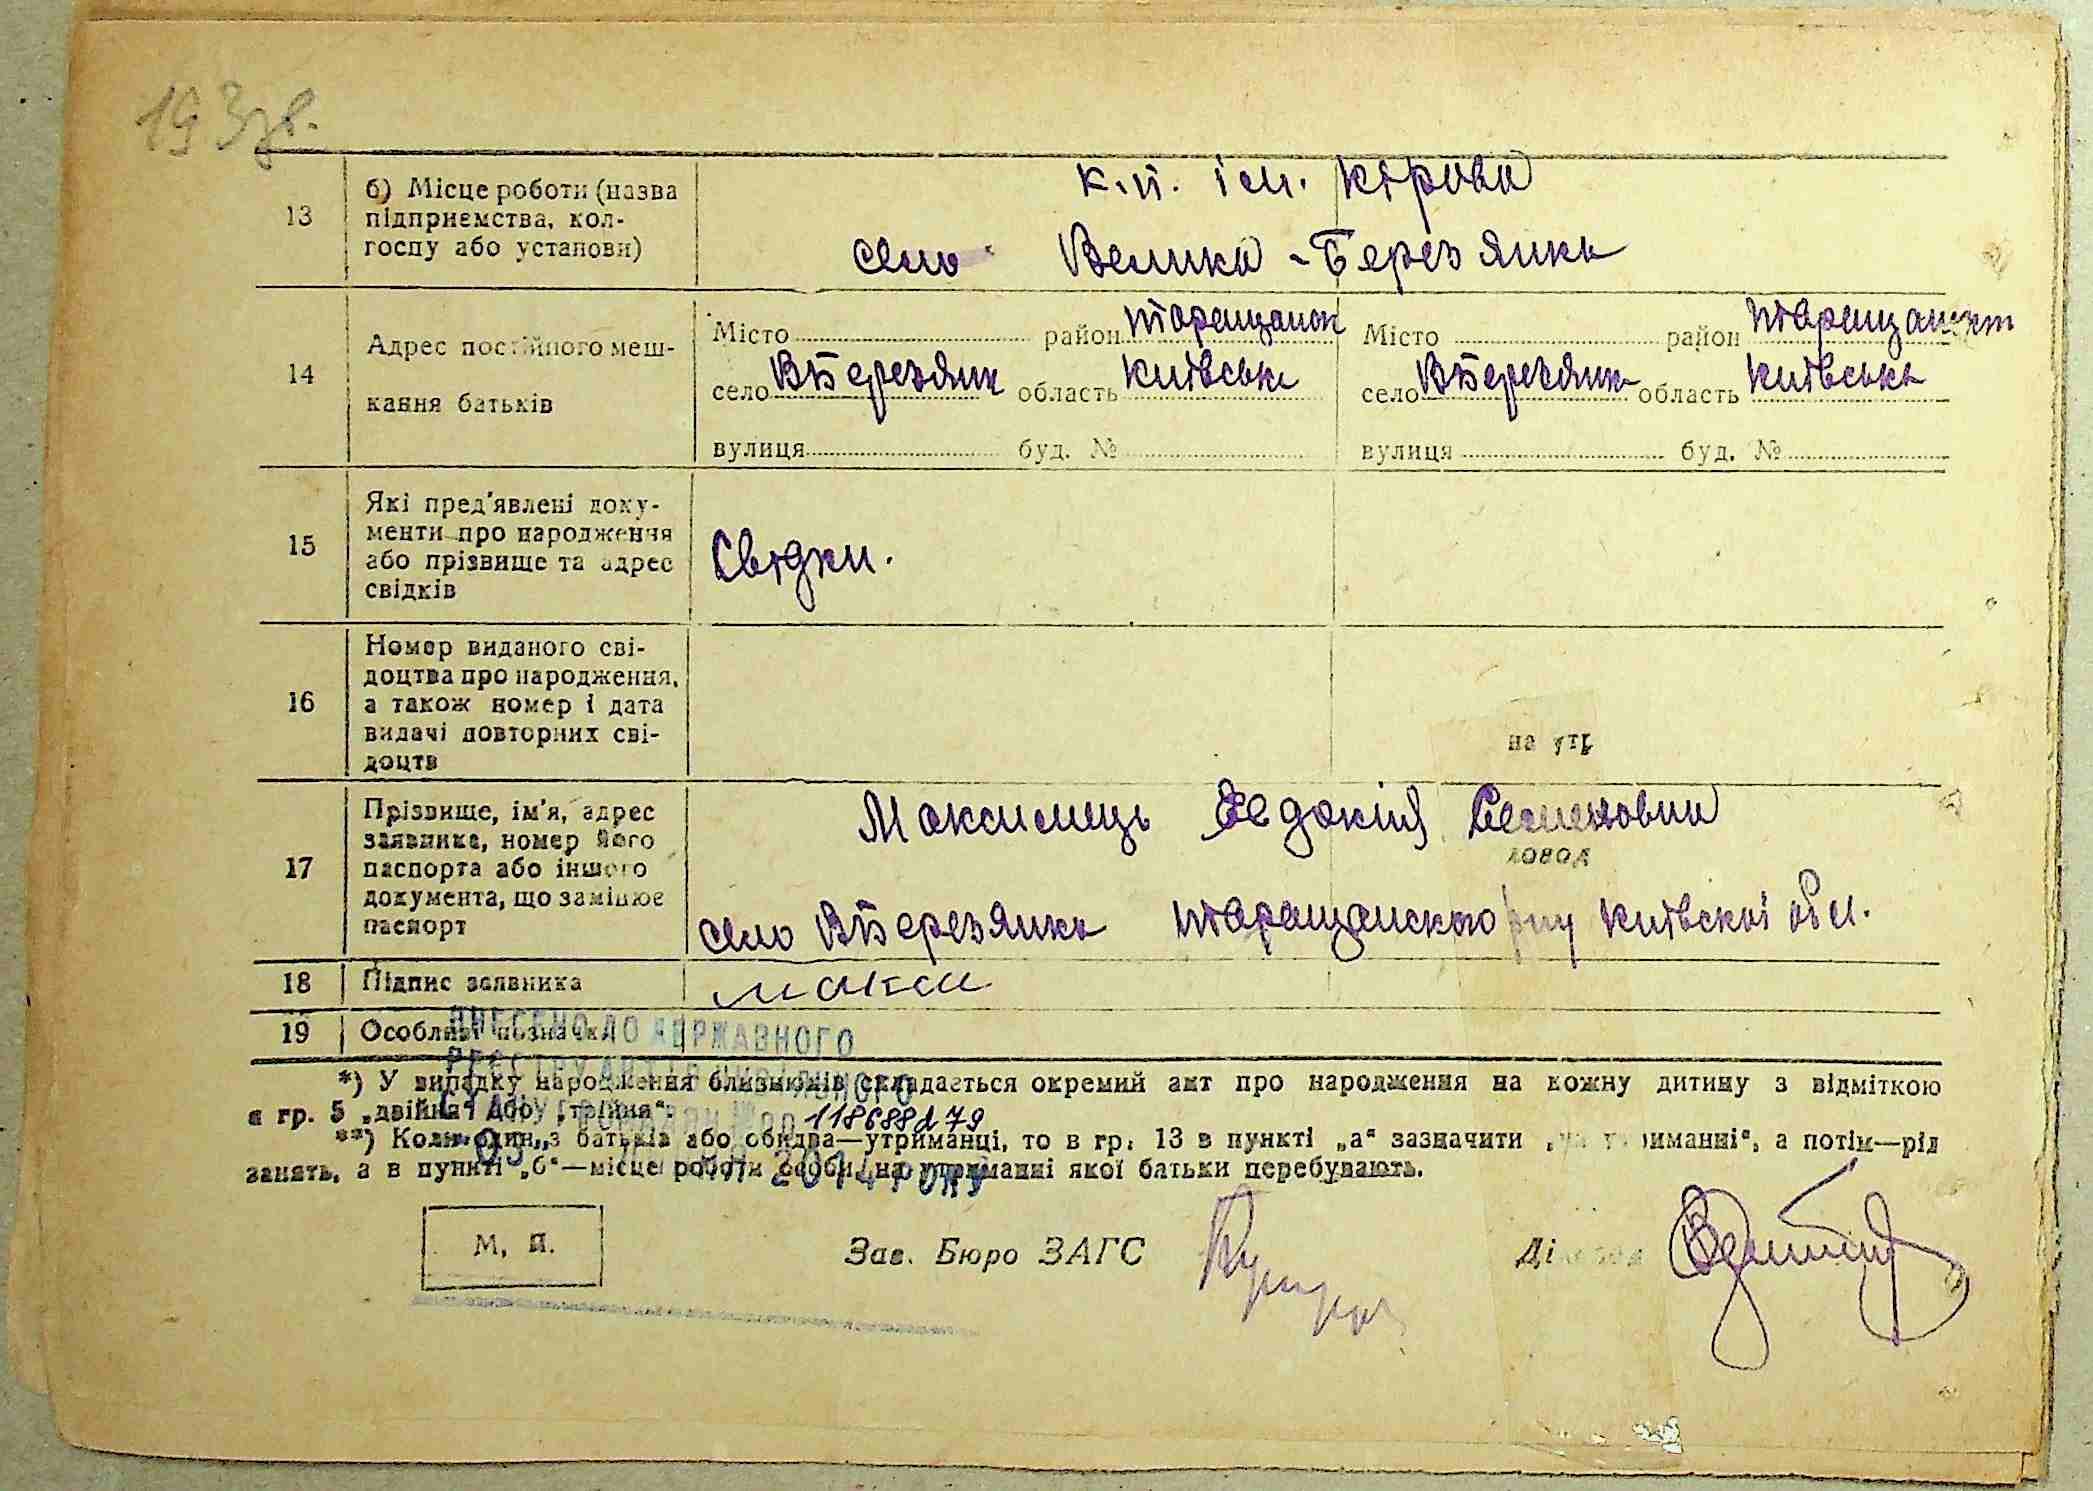 193зв.
13
б) Місце роботи (назва
підприємства, кол-
госпу або установи)
к.п. ім. Кірова
село Велика-Березянка
14
Адрес постійного меш-
кання батьків
Місто район Таращанськ
село ВБерезянк область Київська
вулиця буд. №
Місто район Таращанськ
село ВБерезянка область Київська
вулиця буд. №
15
Які пред'явлені доку-
менти про народження
або прізвище та адрес
свідків
Свідки.
16
Номер виданого сві-
доцтва про народження,
а також номер і дата
видачі повторних сві-
доцтв
на утр
17
Прізвище, ім'я, адрес
заявника, номер його
паспорта або іншого
документа, що замінює
паспорт
Максимець Євдокія Семеновни
ловод
село ВБерезянка Таращанского рну Київскої обл.
18
Підпис заявника
Макси
19
Особливі позначки
ВНЕСЕНО ДО ДЕРЖАВНОГО
РЕЄСТРУ АКТІВ ЦИВІЛЬНОГО
СТАНУ ГРОМАДЯН № 00118688179
2014 року
*) У випадку народження близнюків складається окремий акт про народження на кожну дитину з відміткою
в гр. 5 „двійня“ або „трійня“.
**) Коли один з батьків або обидва—утриманці, то в гр. 13 в пункті „а“ зазначити „на утриманні“, а потім—рід
занять, а в пункті „б“—місце роботи особи, на утриманні якої батьки перебувають.
М. П.
Зав. Бюро ЗАГС
Діловод